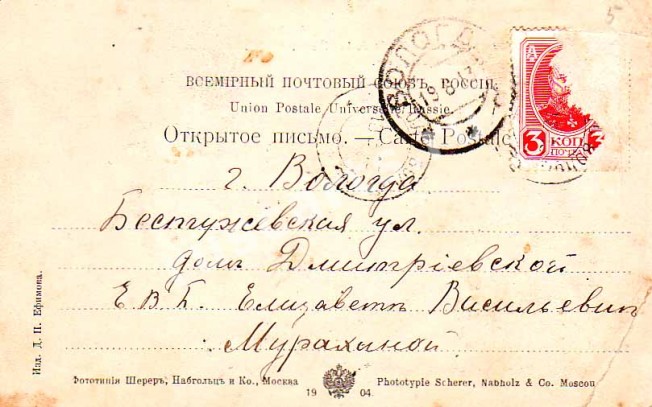 5
ВСЕМІРНЫЙ ПОЧТОВЫЙ СОЮЗЪ, РОССІЯ
Union Postale Universelle, Russie.
Открытое письмо. — Carte Postale
ВОЛОГДА
3 КОП
ПОЧТ
г. Вологда
Бестужевская ул.
домъ Дмитріевской
Е В Б. Елизаветѣ Васильевнѣ
Мурахиной
Изд. Д. П. Ефимова.
Фототипія Шереръ, Набгольцъ и Ко., Москва
Phototypie Scherer, Nabholz & Co. Moscou
19 04